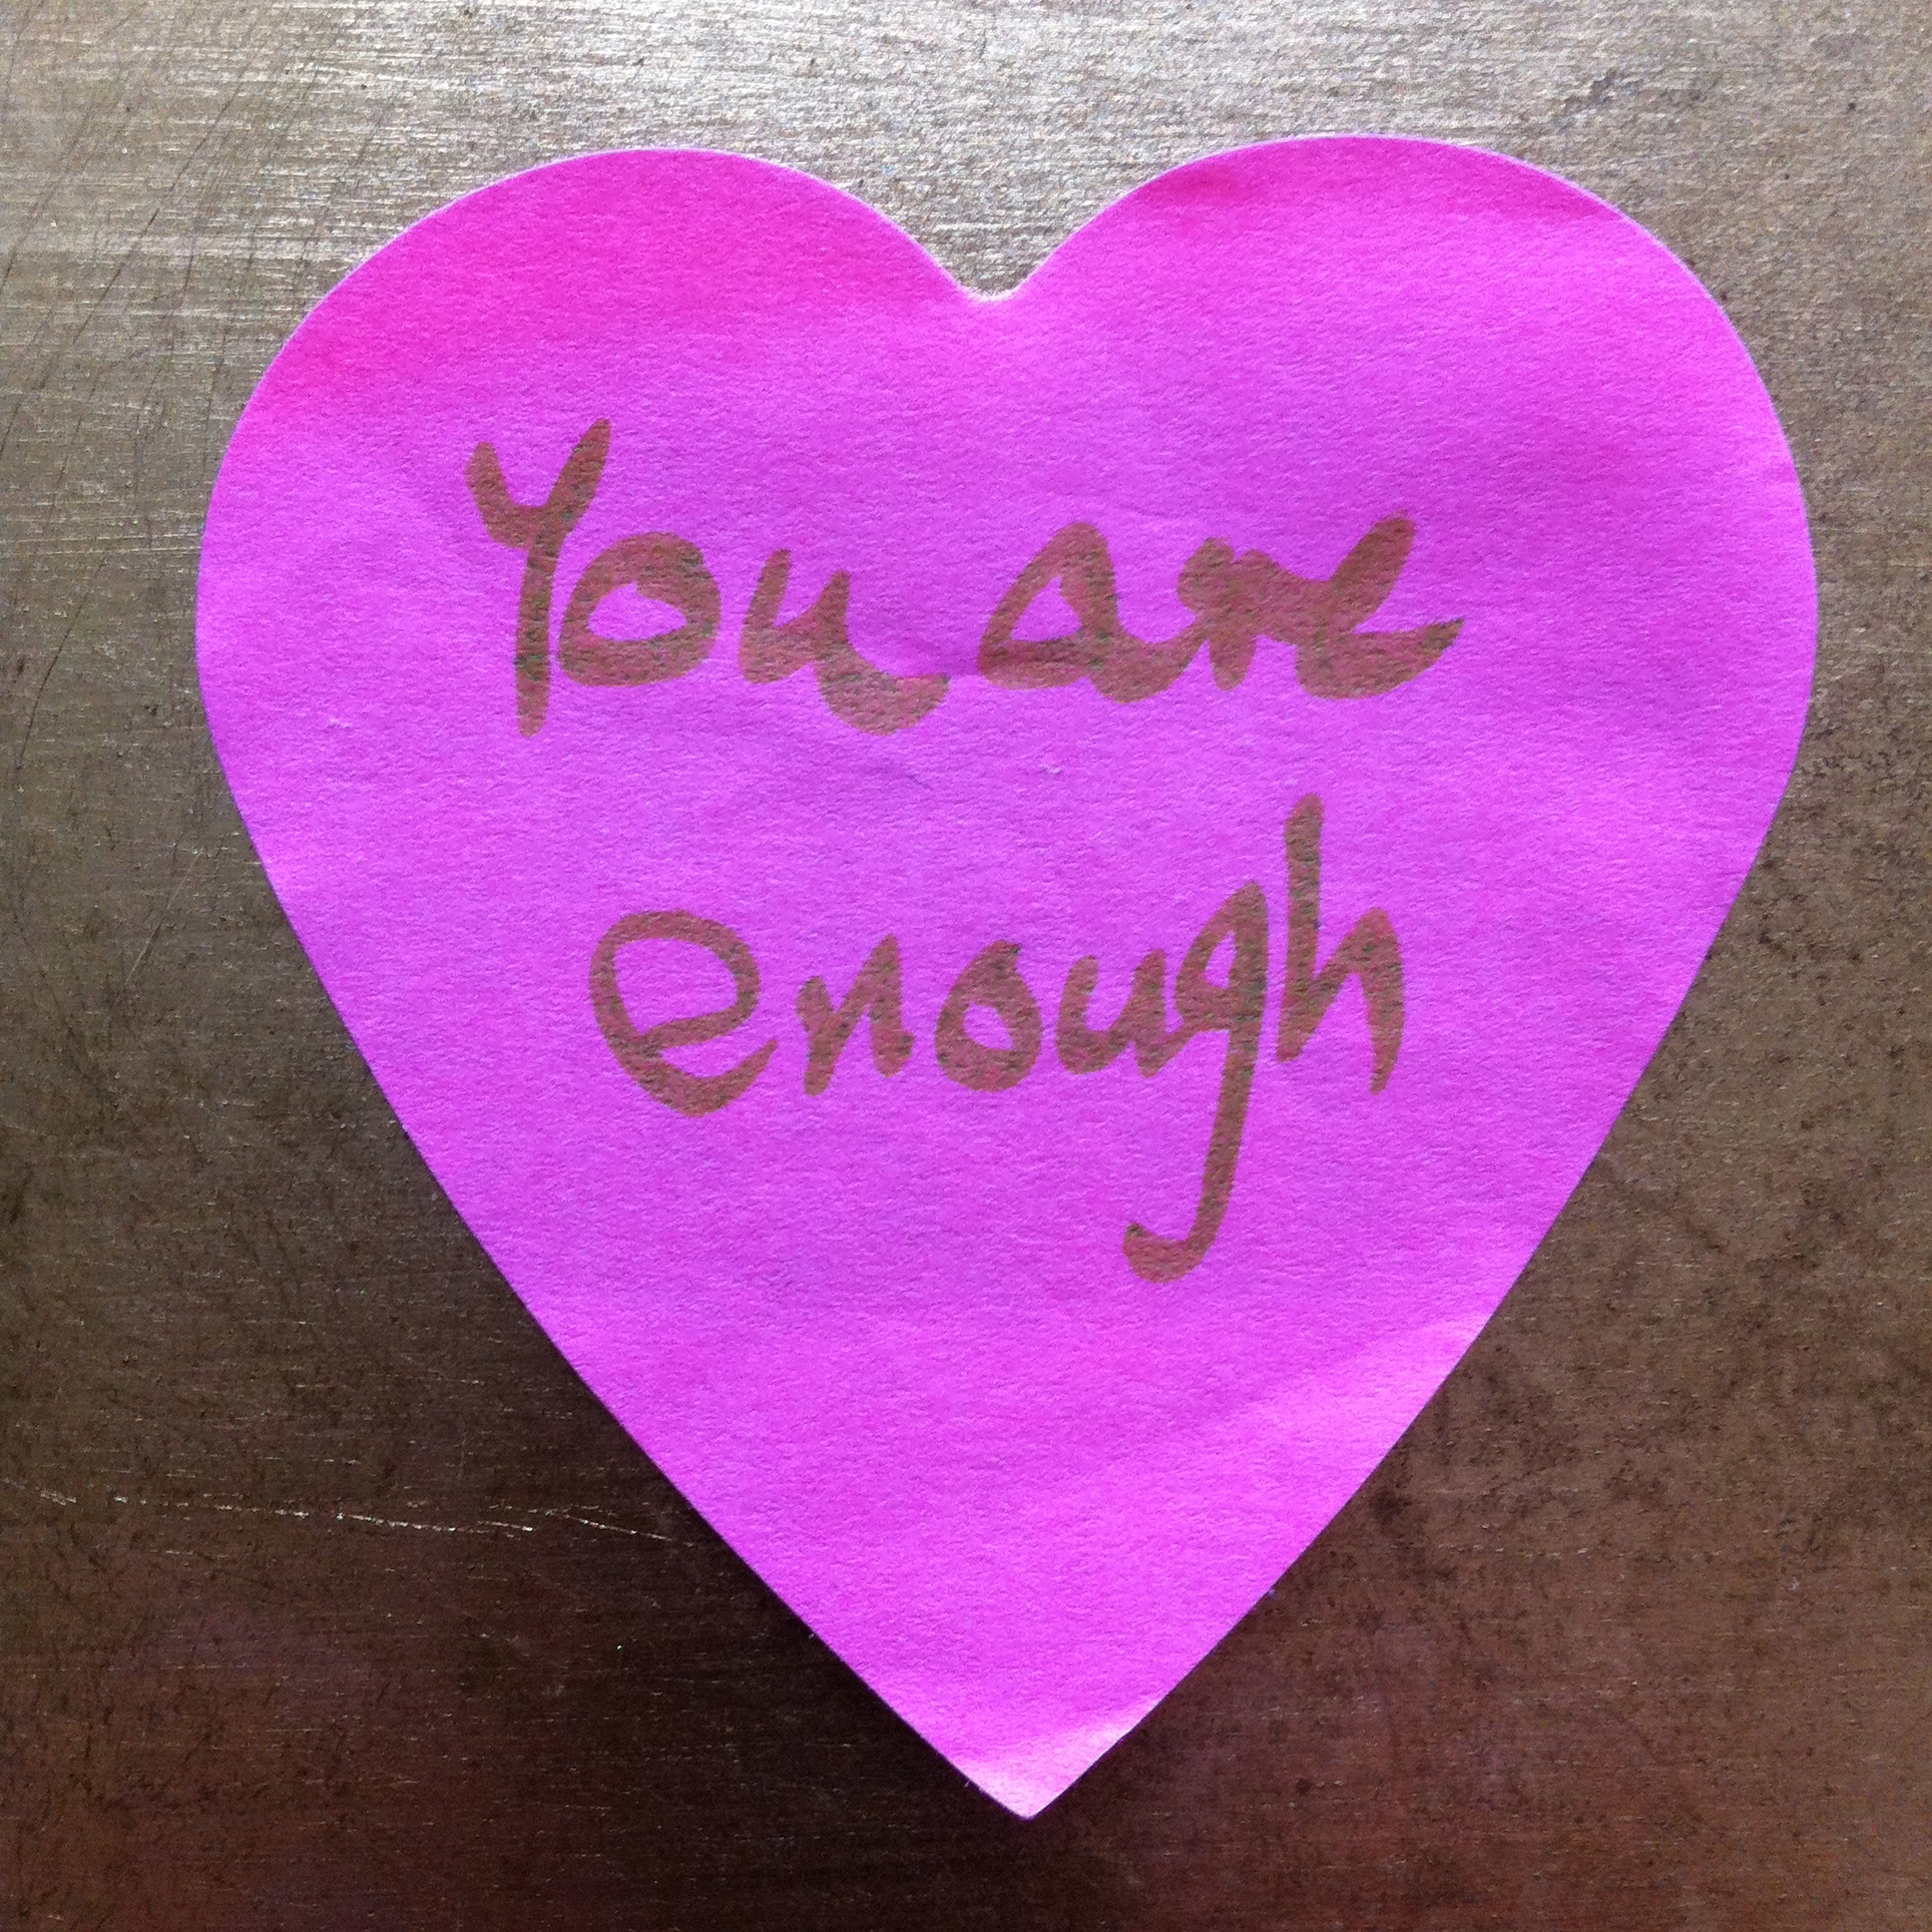 You are
enough